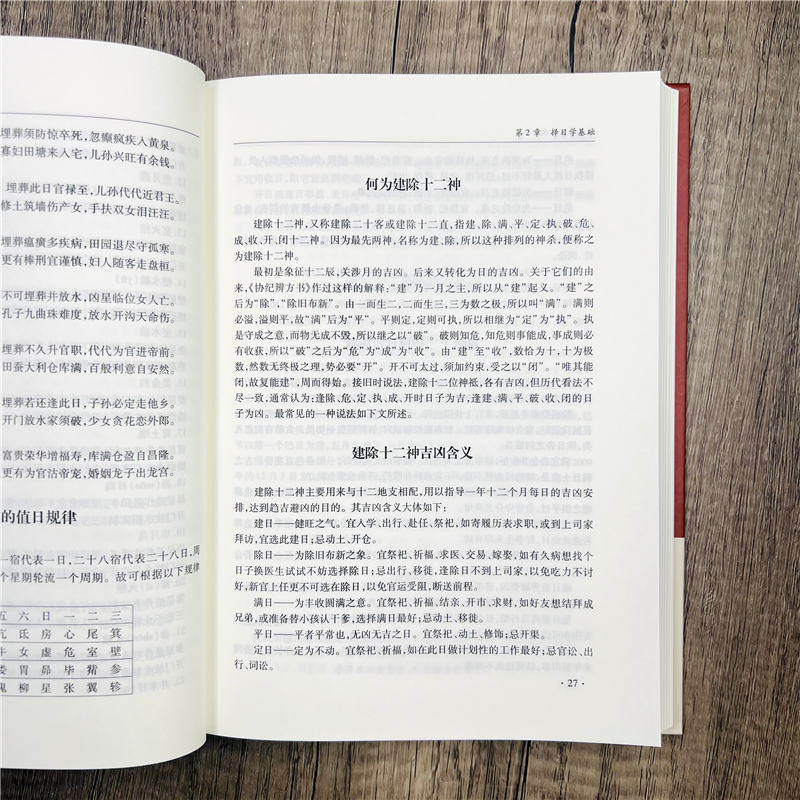 埋葬须防惊卒死，忽癫疯疾入黄泉。
寡妇田塘来入宅，儿孙兴旺有余钱。
埋葬此日官禄至，儿孙代代近君王。
修土筑墙伤产女，手扶双女泪汪汪。
埋葬瘟𤺥多疾病，田园退尽守孤寒。
更有棒刑宜谨慎，妇人随客走盘桓。
不可埋葬并放水，凶星临位女人亡。
孔子九曲珠难度，放水开沟天命伤。
埋葬不久升官职，代代为官近帝前。
田蚕大利仓库满，百般利意自安然。
埋葬若还逢此日，子孙必定走他乡。
开门放水家须破，少女贪花恋外郎。
富贵荣华增福寿，库满仓盈自昌隆。
更有为官沾帝宠，婚姻龙子出龙宫。
的值日规律
一宿代表一日，二十八宿代表二十八日，周
个星期轮流一个周期。故可根据以下规律
五 六 日 一 二 三
亢 氐 房 心 尾 箕
牛 女 虚 危 室 壁
娄 胃 昴 毕 觜 参
鬼 柳 星 张 翼 轸
第2章 择日学基础
何为建除十二神
建除十二神，又称建除二十客或建除十二直，指建、除、满、平、定、执、破、危、
成、收、开、闭十二神。因为最先两神，名称为建、除，所以这种排列的神杀，便称之
为建除十二神。
最初是象征十二辰，关涉月的吉凶。后来又转化为日的吉凶。关于它们的由
来，《协纪辨方书》作过这样的解释：“建”乃一月之主，所以从“建”起义。“建”之
后为“除”，“除旧布新”。由一而生二，二而生三，三为数之极，所以叫“满”。满则
必溢，溢则平，故“满”后为“平”。平则定，定则可执，所以相继为“定”为“执”。执
是守成之意，而物无成不毁，所以继之以“破”。破则知危，知危则事能成，事成则必
有收获，所以“破”之后为“危”为“成”为“收”。由“建”至“收”，数恰为十，十为极
数，然数无终极之理，势必要“开”。开不可太过，须加约束，受之以“闭”。“唯其能
闭，故复能建”，周而得始。接旧时说法，建除十二位神祇，各有吉凶，但历代看法不
尽一致，通常认为：逢除、危、定、执、成、开时日子为吉，逢建、满、平、破、收、闭的日
子为凶。最常见的一种说法如下文所述。
建除十二神吉凶含义
建除十二神主要用来与十二地支相配，用以指导一年十二个月每日的吉凶安
排，达到趋吉避凶的目的。其吉凶含义大体如下：
建日——健旺之气。宜入学、出行、赴任、祭祀，如寄履历表求职，或到上司家
拜访，宜选此建日；忌动土、开仓。
除日——为除旧布新之象。宜祭祀、祈福、求医、交易、嫁娶，如有久病想找个
日子换医生试试不妨选择除日；忌出行、移徙，逢除日不到上司家，以免吃力不讨
好，新官上任更不可选在除日，以免官运受阻，断送前程。
满日——为丰收圆满之意。宜祭祀、祈福、结亲、开市、求财，如好友想结拜成
兄弟，或准备替小孩认干爹，选择满日最好；忌动土、移徙。
平日——平者平常也，无凶无吉之日。宜祭祀、动土、修饰；忌开渠。
定日——定为不动。宜祭祀、祈福，如在此日做计划性的工作最好；忌官讼、出
行、词讼。
· 27 ·